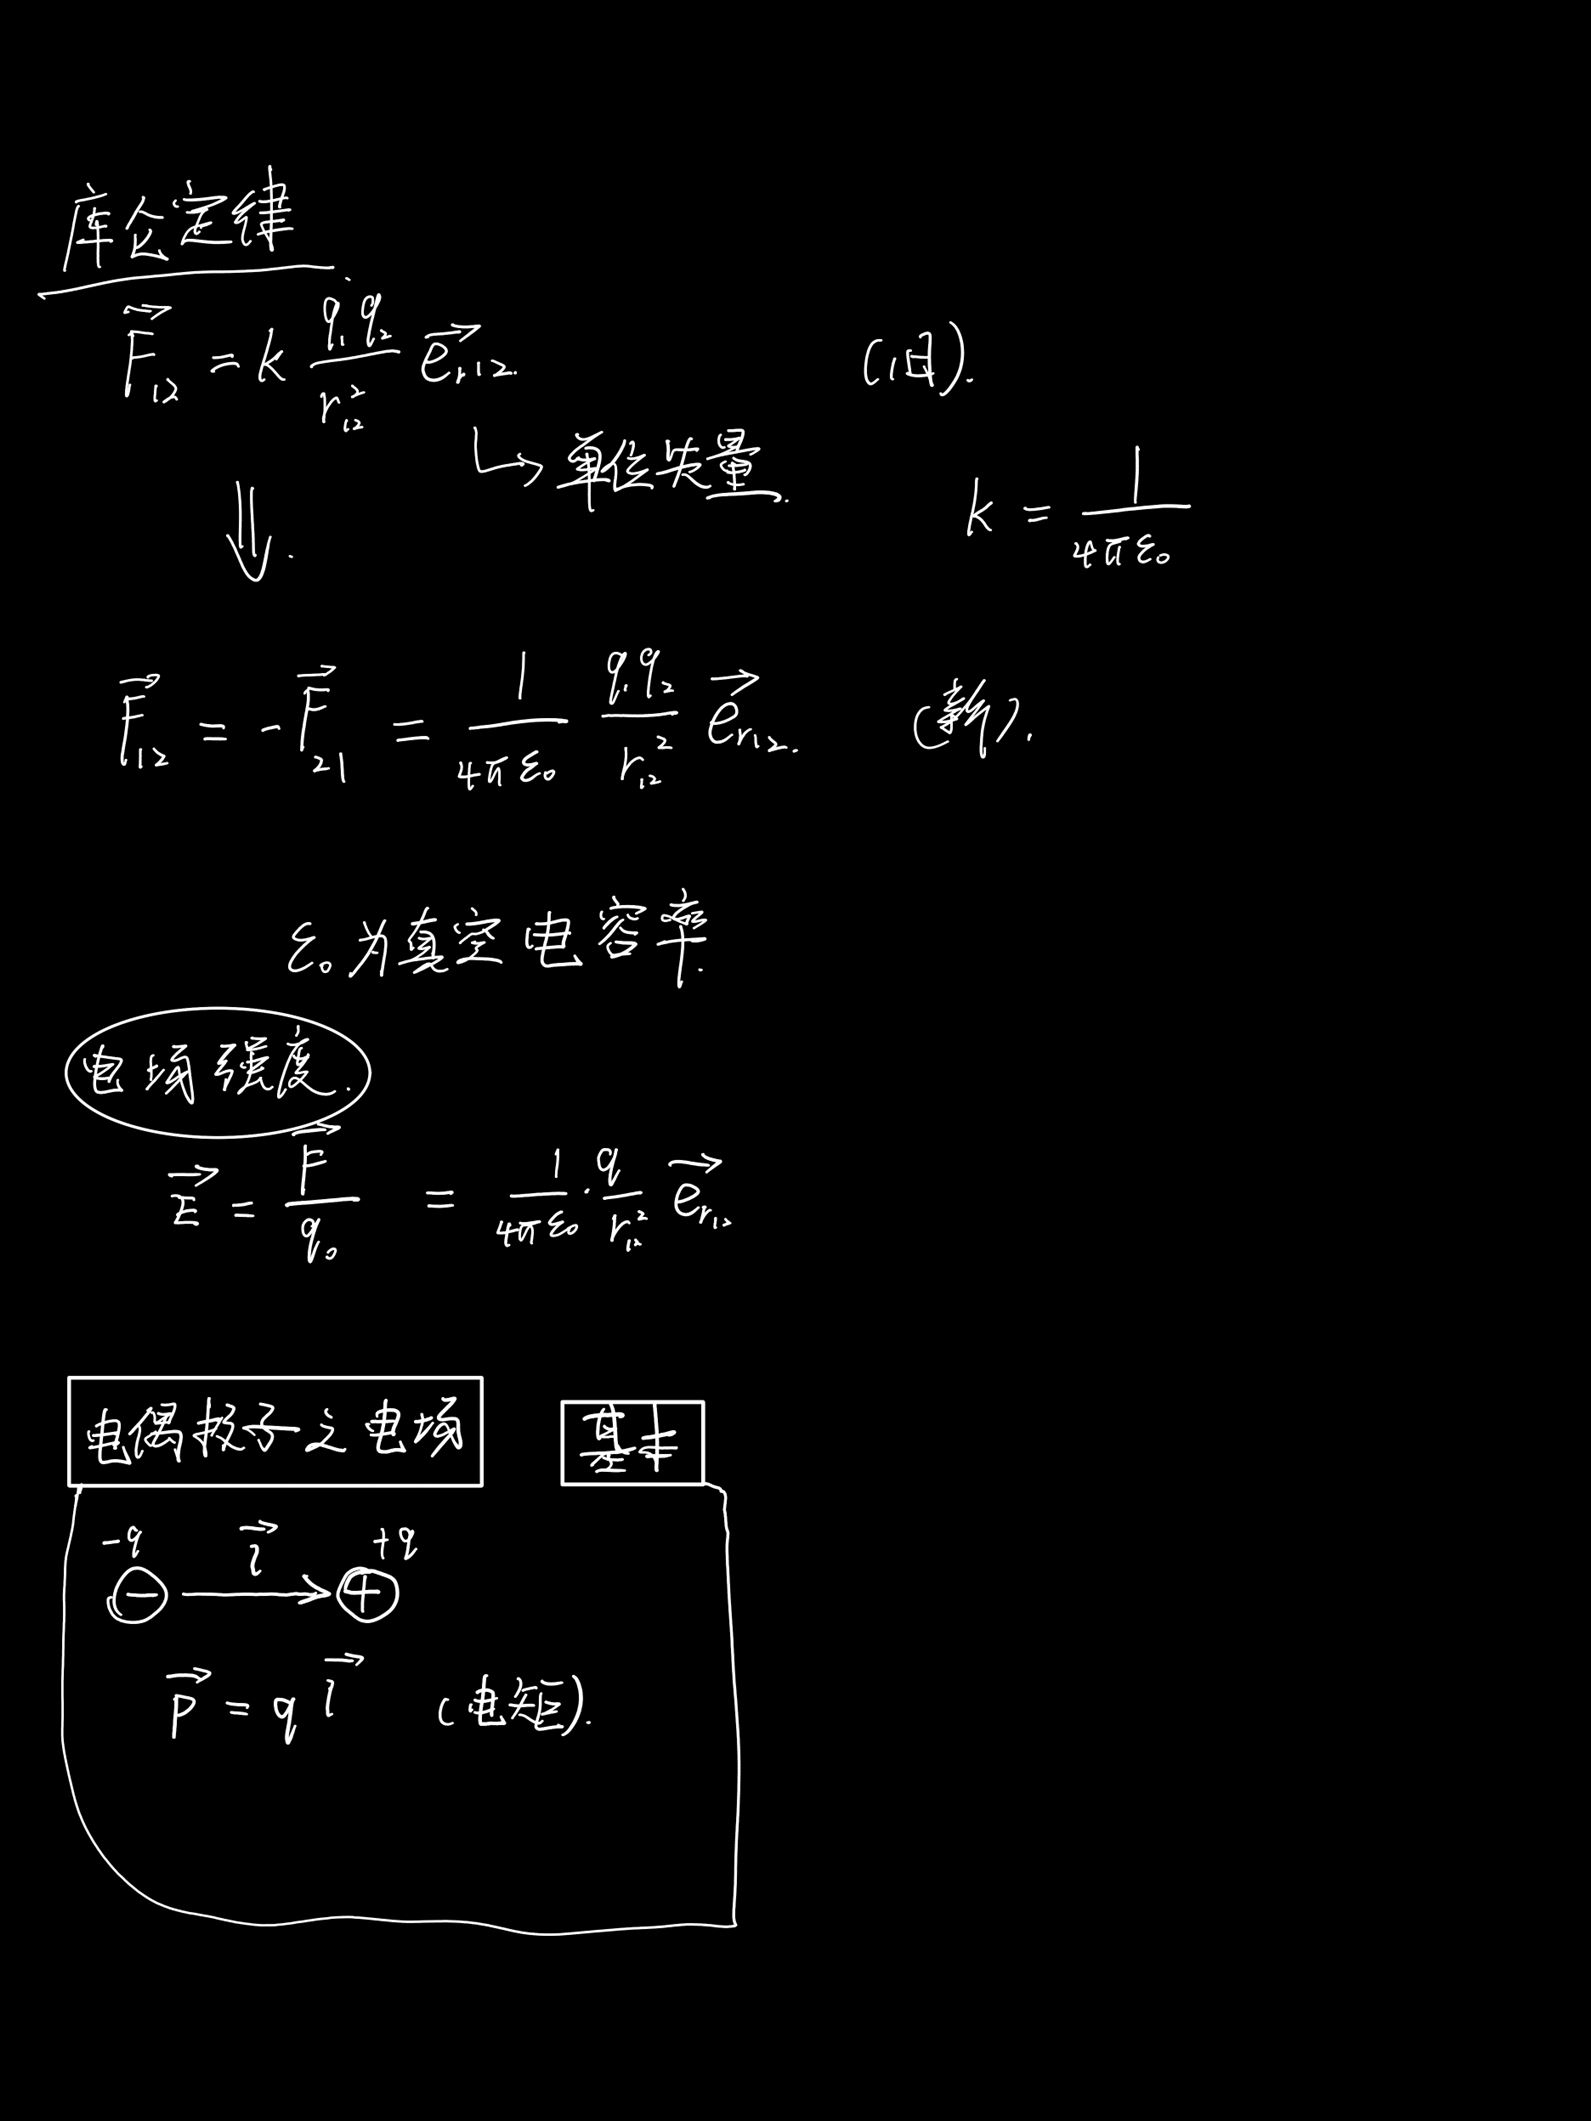 库仑定律
F⃗₁₂ = k q₁q₂/r₁₂² e⃗ᵣ₁₂. (旧).
↳ 单位矢量.
k = 1/4πε₀
⇓.
F⃗₁₂ = -F⃗₂₁ = 1/4πε₀ q₁q₂/r₁₂² e⃗ᵣ₁₂. (新).
ε₀为真空电容率.
电场强度.
E⃗ = F⃗/q₀ = 1/4πε₀ · q/r₁₂² e⃗ᵣ₁₂
电偶极子之电场 基本
-q l⃗ +q
− → +
p⃗ = q l⃗ (电矩).